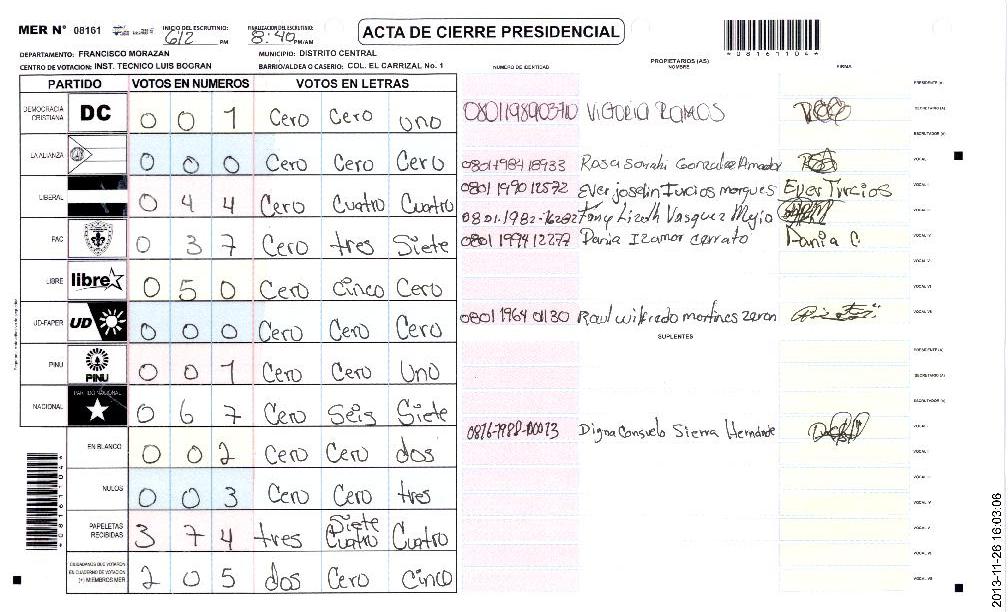 MER Nº 08161 INICIO DEL ESCRUTINIO: 612 PM FINALIZACIÓN DEL ESCRUTINIO: 8:40 PM/AM ACTA DE CIERRE PRESIDENCIAL
*08161104*
DEPARTAMENTO: FRANCISCO MORAZAN MUNICIPIO: DISTRITO CENTRAL
CENTRO DE VOTACION: INST. TECNICO LUIS BOGRAN BARRIO/ALDEA O CASERIO: COL. EL CARRIZAL No. 1
PROPIETARIOS (AS)
NUMERO DE IDENTIDAD NOMBRE FIRMA
PARTIDO VOTOS EN NUMEROS VOTOS EN LETRAS
PRESIDENTE (A)
DEMOCRACIA CRISTIANA DC 0 0 1 Cero Cero uno
VICTORIA RAMOS SECRETARIO (A)
ESCRUTADOR (A)
LA ALIANZA 0 0 0 Cero Cero Cero
0801 1984 18933 Rosa Sarahi Gonzalez Amador VOCAL I
LIBERAL 0 4 4 Cero Cuatro Cuatro
0801 1990 12572 Ever joselin Turcios marques Ever Turcios VOCAL II
0801-1982-16282 Tany Lizeth Vasquez Mejio VOCAL III
PAC 0 3 7 Cero tres Siete
0801 1994 12277 Dania Izamar cerrato Dania C. VOCAL IV
VOCAL V
LIBRE libre 0 5 0 Cero Cinco Cero
VOCAL VI
UD-FAPER UD 0 0 0 Cero Cero Cero
0801 1964 01130 Raul wilfredo martines zeron VOCAL VII
SUPLENTES
PRESIDENTE (A)
PINU PINU 0 0 1 Cero Cero Uno
SECRETARIO (A)
NACIONAL PARTIDO NACIONAL 0 6 7 Cero Seis Siete
ESCRUTADOR (A)
Digna Consuelo Sierra Hernande VOCAL I
EN BLANCO 0 0 2 Cero Cero dos
VOCAL II
VOCAL III
NULOS 0 0 3 Cero Cero tres
VOCAL IV
PAPELETAS RECIBIDAS 3 7 4 tres Siete Cuatro Cuatro
VOCAL V
VOCAL VI
CIUDADANOS QUE VOTARON EN CUADERNO DE VOTACION (+) MIEMBROS MER 2 0 5 dos Cero Cinco
VOCAL VII
*08161104*
2013-11-26 16:03:06